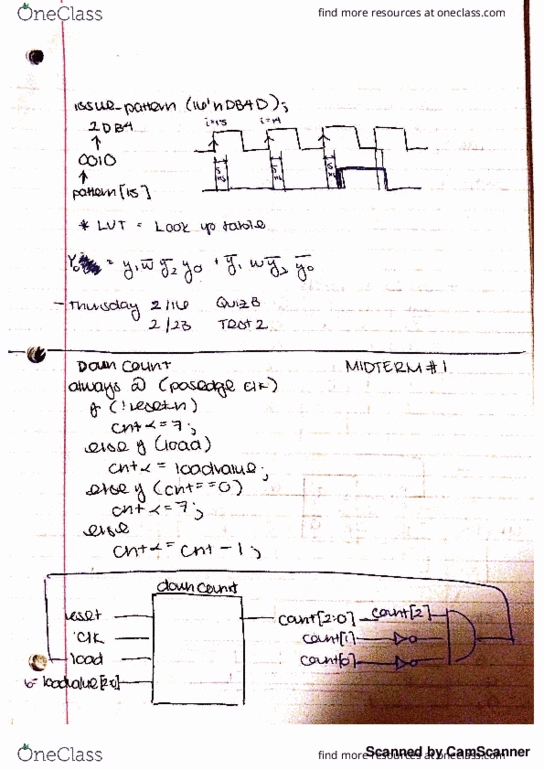 OneClass
find more resources at oneclass.com
issue_pattern (16'h2DB4D);
2DB4
0010
pattern[15]
i=15
i=14
5ns
5ns
5ns
* LUT = Look up table
= y1 w̅ y̅2 y0 + y̅1 w y̅2 y̅0
- Thursday 2/16 Quiz 3
2/23 Test 2
Down Count
MIDTERM #1
always @ (posedge clk)
if (!resetn)
cnt <= 7;
else if (load)
cnt <= loadvalue;
else if (cnt==0)
cnt <= 7;
else
cnt <= cnt - 1;
downcount
reset
clk
load
6= loadvalue[2:0]
count[2:0]
count[2]
count[1]
count[0]
OneClass
find more resources at oneclass.com
Scanned by CamScanner